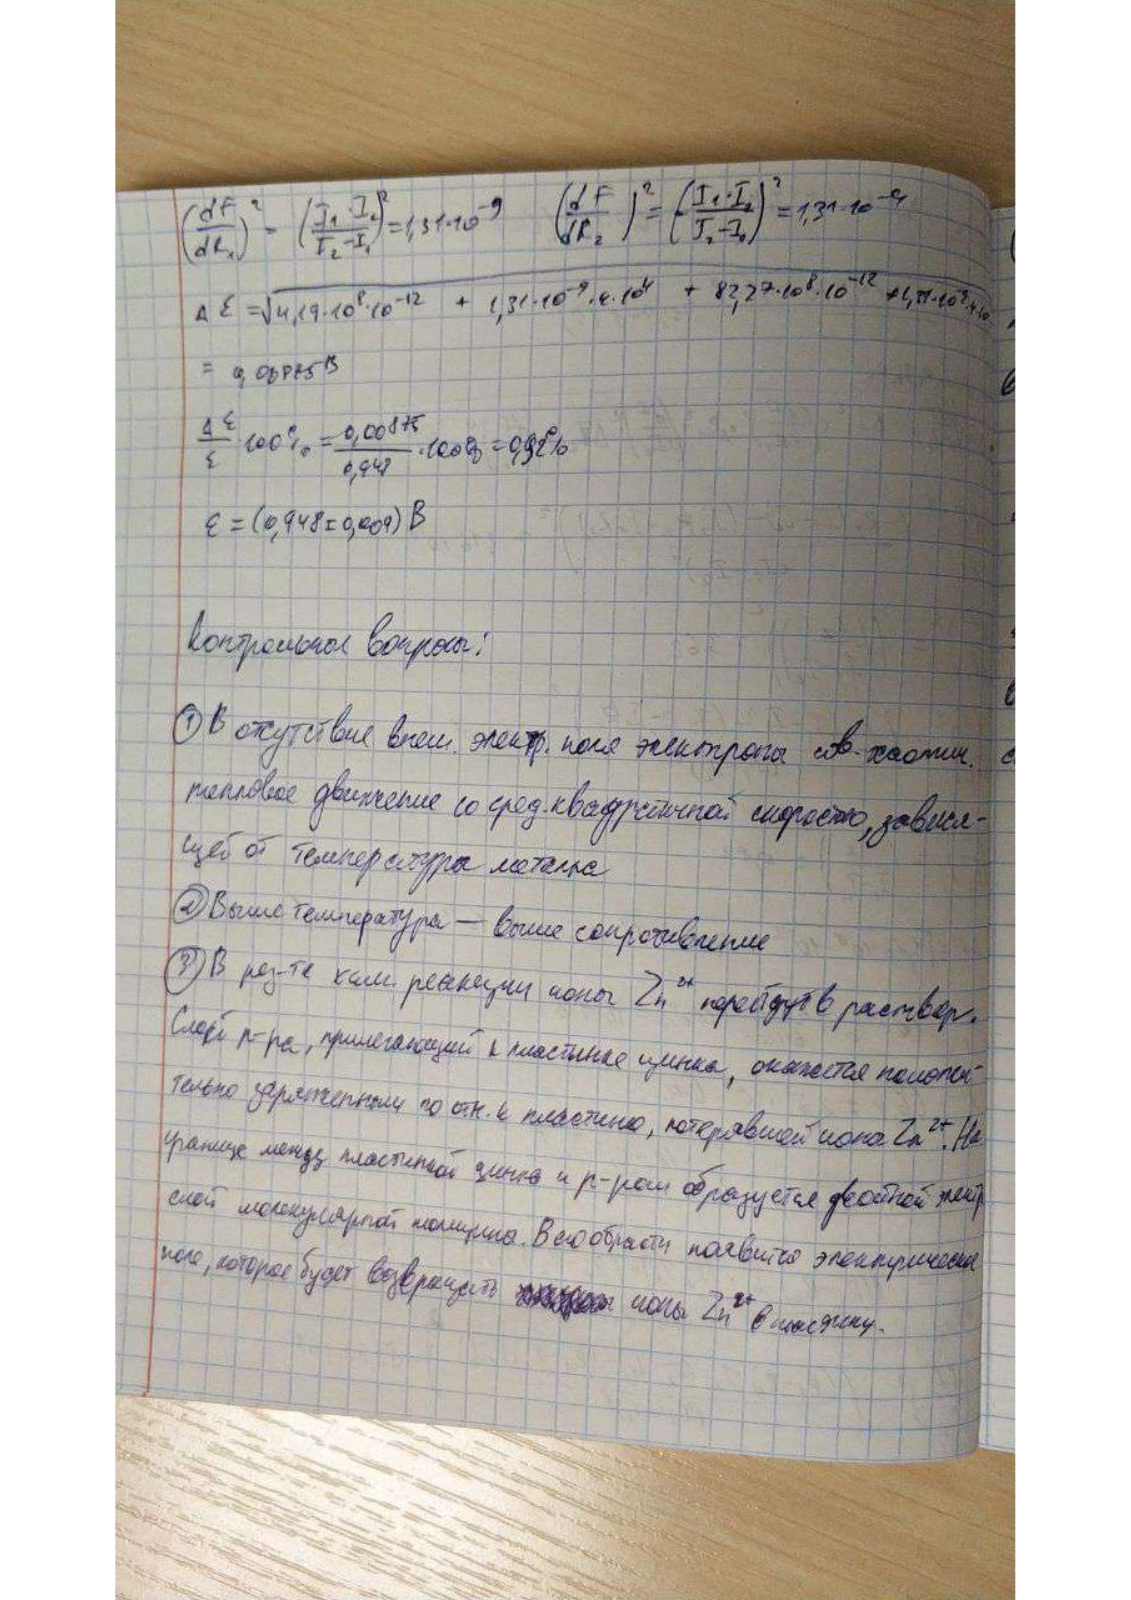 (dF/dR₁)² = (I₁·I₂/(I₂-I₁))² = 1,31·10⁻⁹ (dF/dR₂)² = (-I₁·I₂/(I₂-I₁))² = 1,31·10⁻⁹
Δℰ = √(4,19·10⁸·10⁻¹² + 1,31·10⁻⁹·4·10⁴ + 82,27·10⁸·10⁻¹² + 1,31·10⁻⁹·4·10
= 0,00875 В
Δℰ/ℰ ·100% = 0,00875/0,948 ·100% = 0,92%
ℰ = (0,948±0,009) В
Контрольные вопросы:
① В отсутствие внеш. электр. поля электроны сов. хаотич.
тепловое движение со сред. квадратичной скоростью, завися-
щей от температуры металла
② Выше температура — выше сопротивление
③ В рез-те хим. реакции ионы Zn²⁺ перейдут в раствор.
Слой р-ра, прилегающий к пластинке цинка, окажется положи-
тельно заряженным по отн. к пластине, потерявшей ионы Zn²⁺. На
границе между пластинкой цинка и р-ром образуется двойной электр
слой молекулярной толщины. В его области появится электрическое
поле, которое будет возвращать ионы Zn²⁺ в пластину.